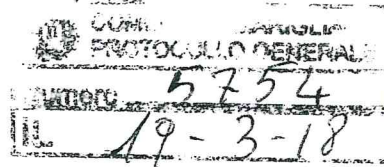 PROTOCOLLO GENERALE
Numero 5754
IL 19-3-18